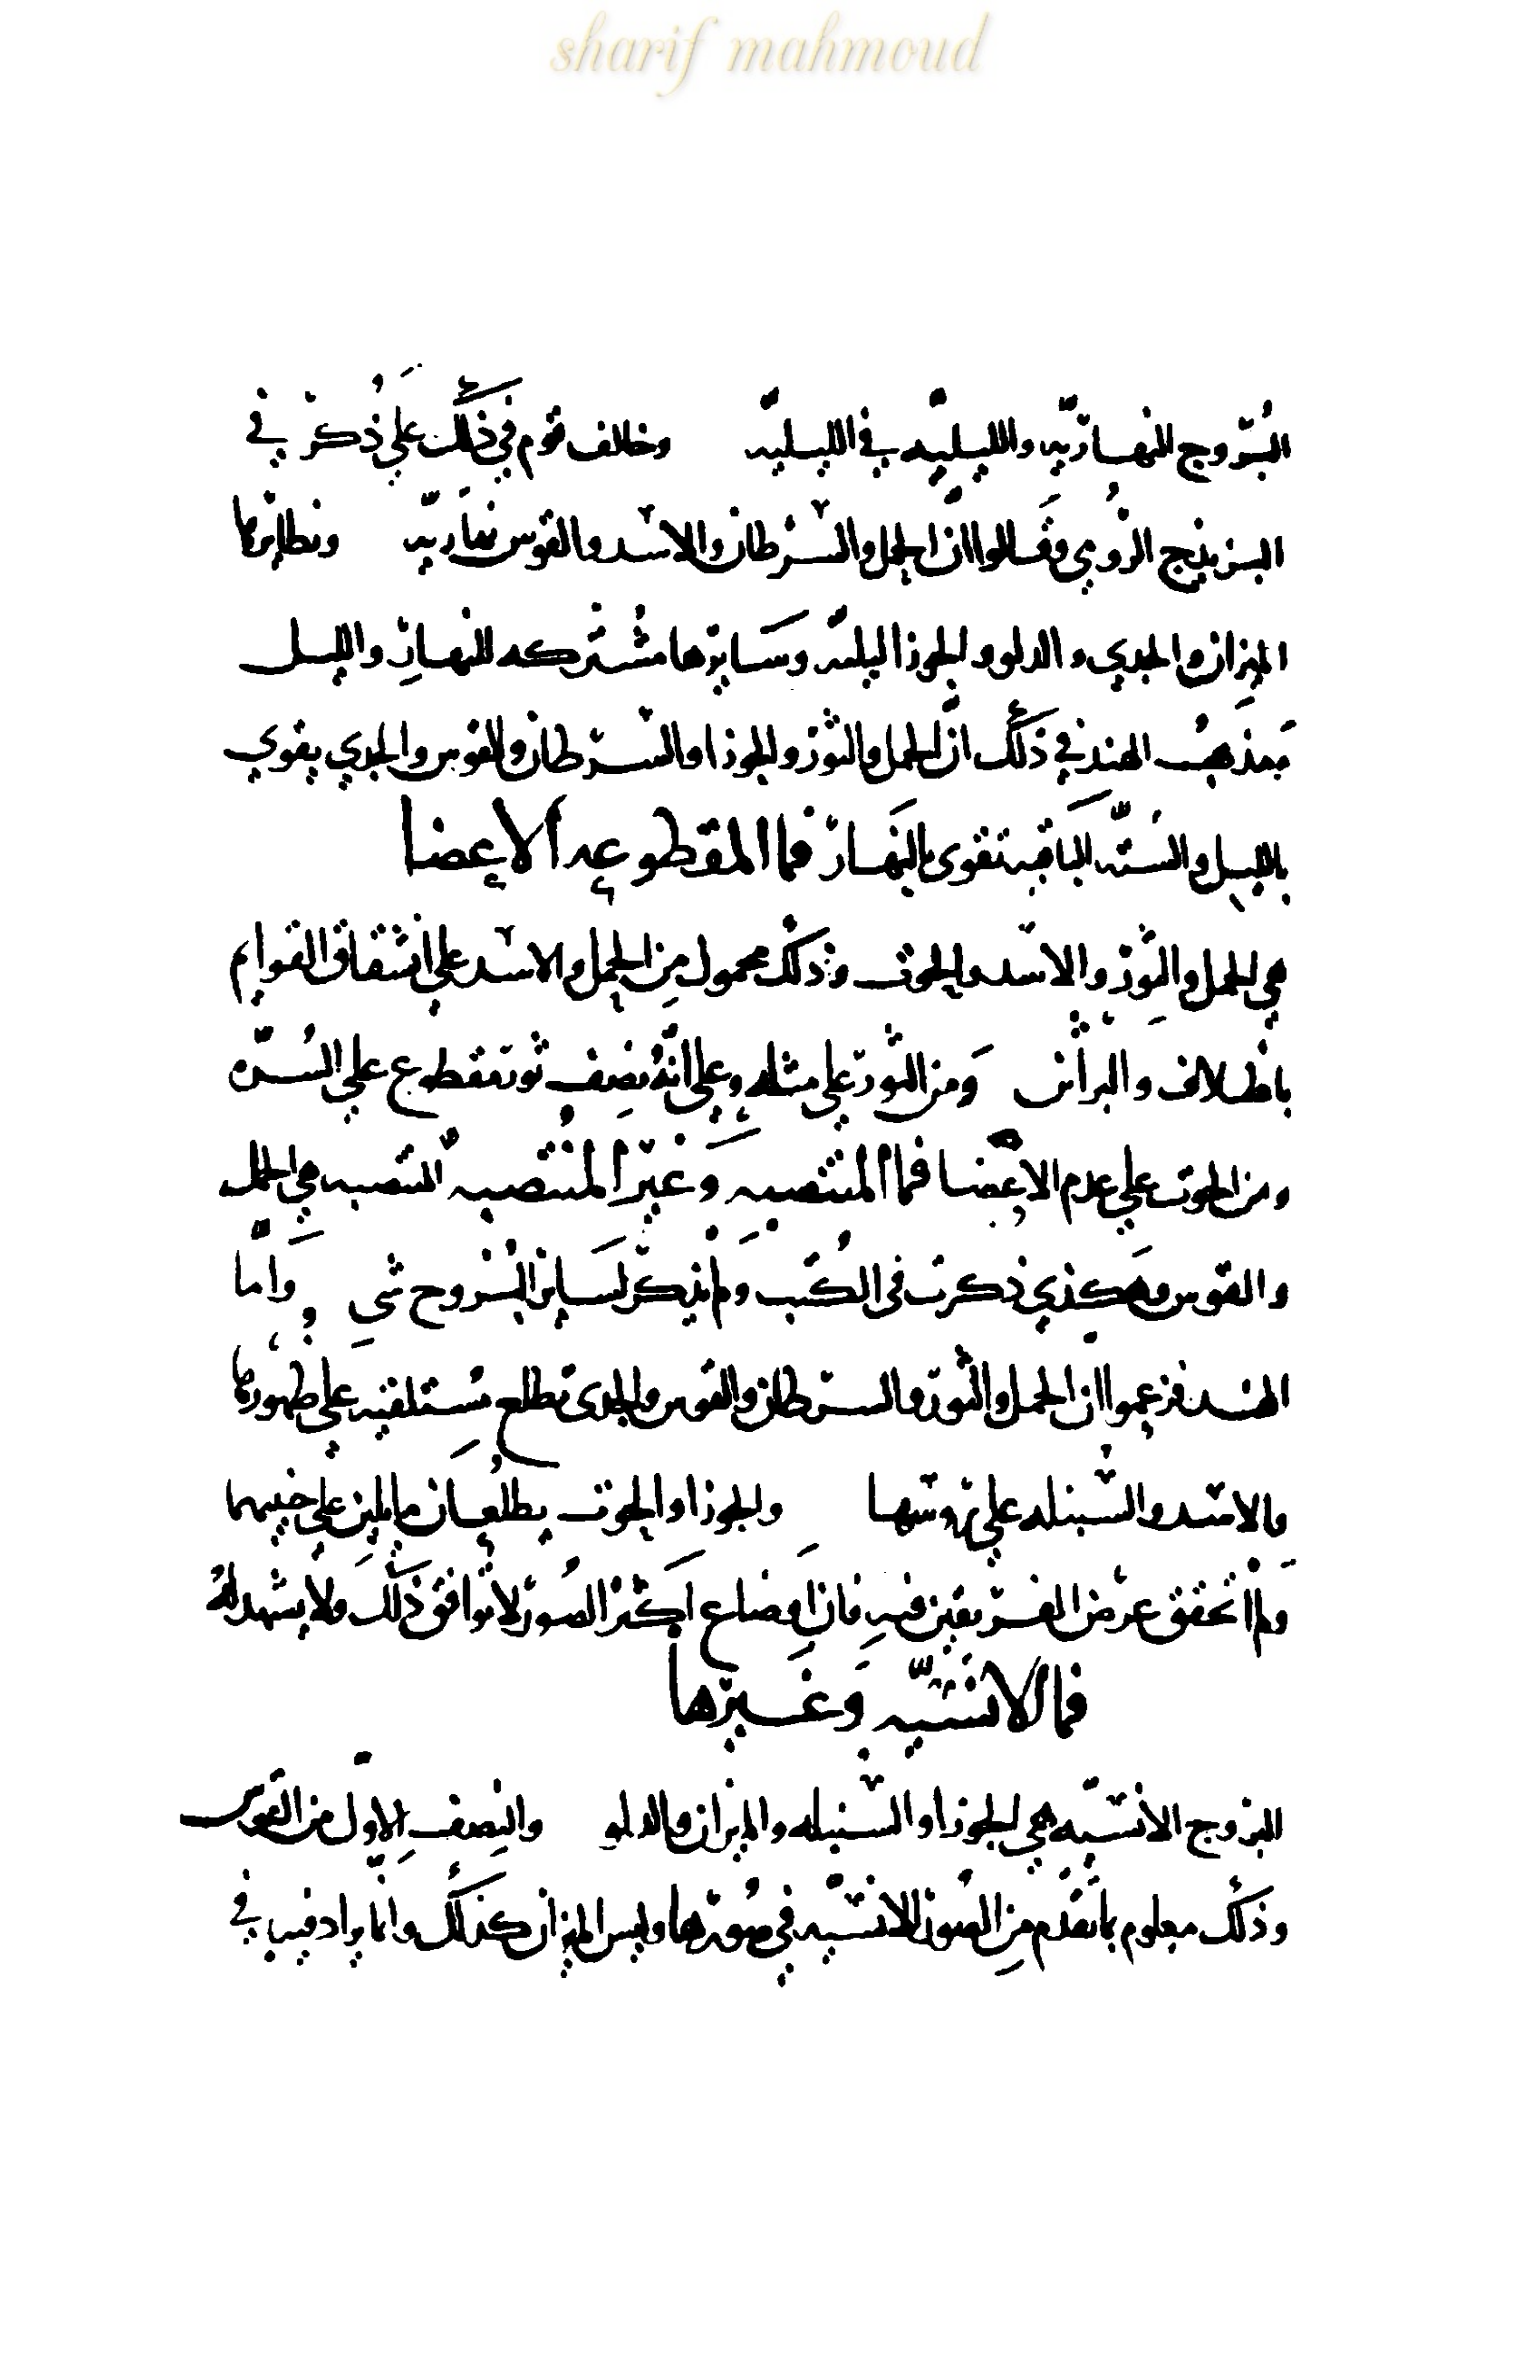 sharif mahmoud
البُرّوج النهاريّه والليليّه في الليليّه وخالف قوم في ذلك على ذُكر في
البزيدج الرُومي وقَالوا ان الحمل والسرطان والاسد والقوس نهاريّه ونظايرها
الميزان والجدي والدلو والجوزا ليليّه وسَايرها مُشتركه للنهارِ والليل
ومذهبُ الهند في ذلك انّ الحمل والثور والجوزا والسرطان والقوس والجدي يقوي
بالليل والسُتّه الباقيه تقوى بالنهار فما المقطوعه الاعضا
هي الحمل والثور والاسد والحوت وذلك محمول مِن الحمل والاسد على انشقاق القوايم
باظلاف والبراثن وَمن الثور على مثله وعلى انّهُ نِصف ثور مقطوع على السُرّه
ومن الحوت على عدم الاعضا فما المنتصبه وَغير المنتصبه المنتصبه هي الحمل
والقوس وهَكذي ذكرت في الكُتب وَلم يذكر لسَاير البُروج شي وامّا
الهند فزعموا ان الحمل والثور والسرطان والقوس والجدى تطلع مُستلقيه على ظهورها
والاسد والسنبله على روسها والجوزا والحوت يطلعَان مايلين على جنبيهما
ولم اتحقق غرض الفريقين فيهِ فان اوضاع اكثر الصُور لا توافق ذلك ولا يشهد لهُ
فما الانسيّه وَغَيرها
البروج الانسيّه هي الجوزا والسنبله والميزان والدلو والنِصف الاوّل من القوس
وذلك معلوم بما تقدم مِن الصُور الانسيّه في صُورها وليس الميزان كذلك وانّما يراد فيه في